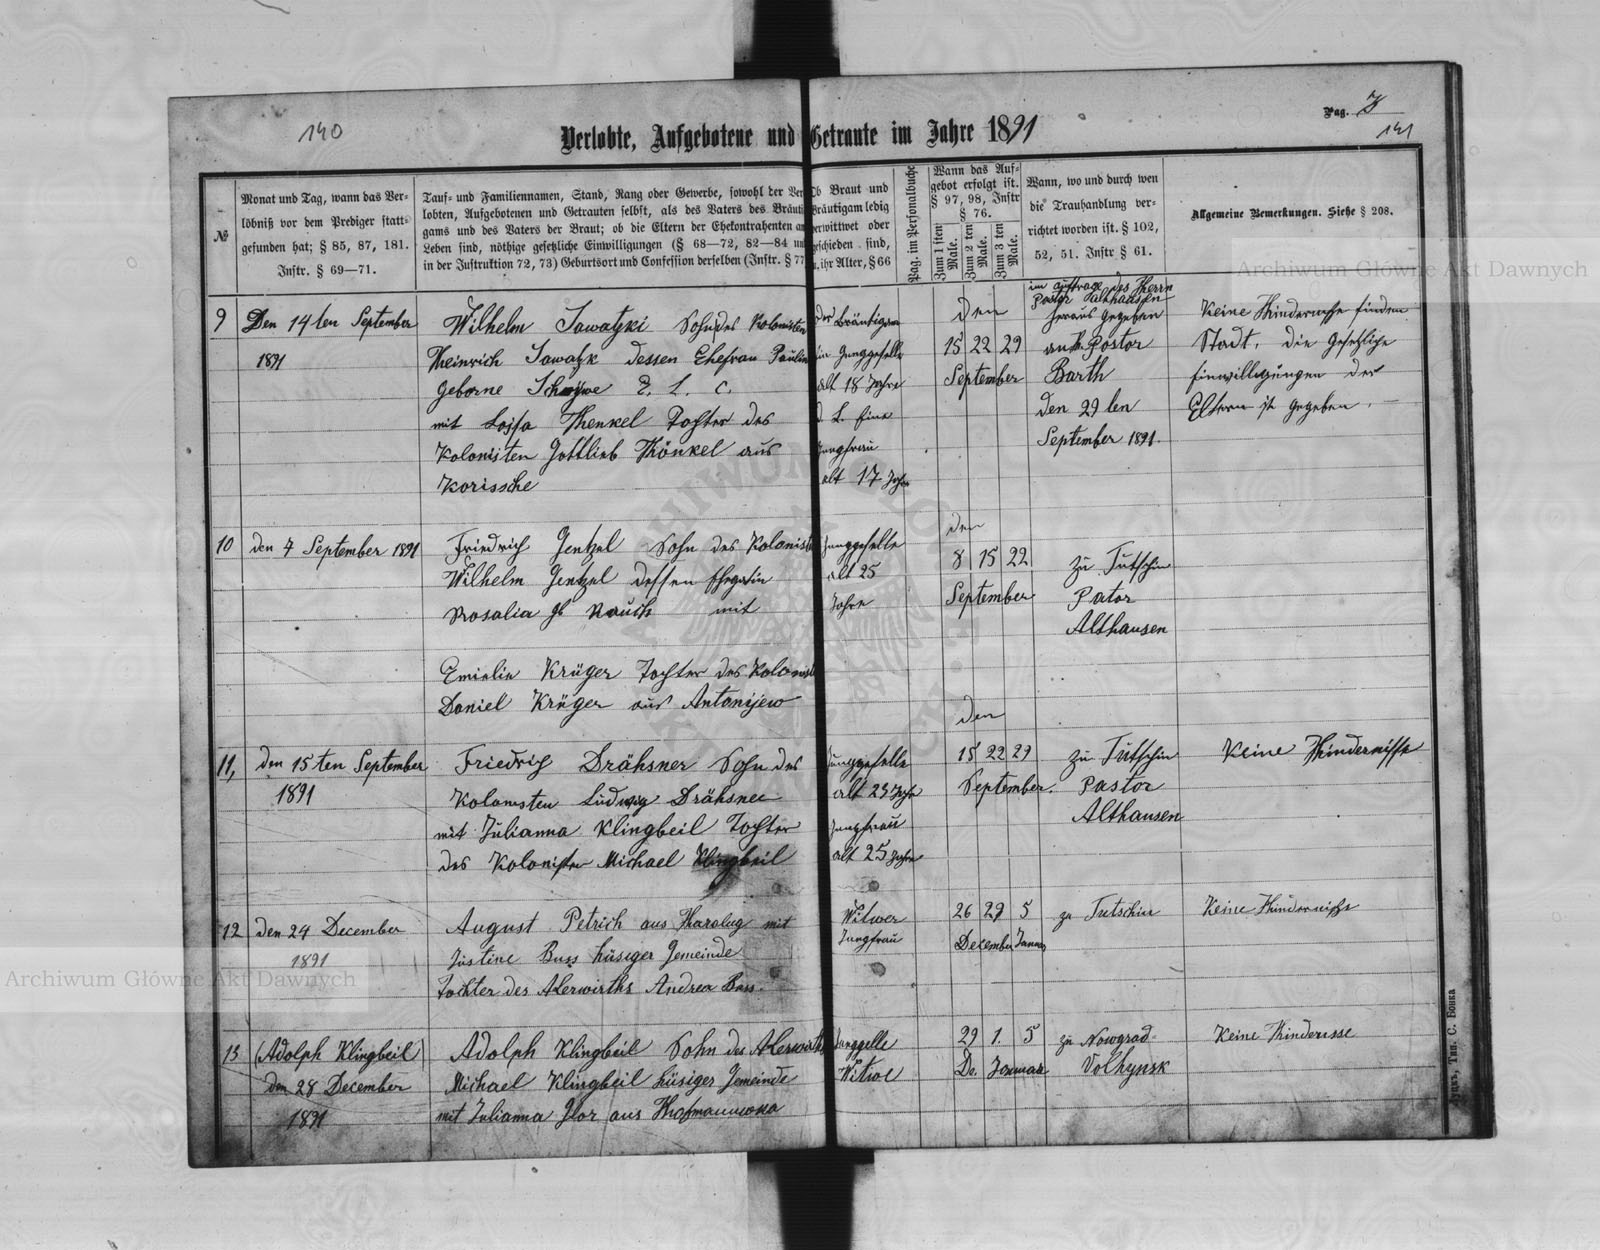 140
Verlobte, Aufgebotene und Getraute im Jahre 1891
Pag. 7
141
№
Monat und Tag, wann das Ver-
löbniß vor dem Prediger statt-
gefunden hat; § 85, 87, 181.
Instr. § 69—71.
Tauf- und Familiennamen, Stand, Rang oder Gewerbe, sowohl der Ver
lobten, Aufgebotenen und Getrauten selbst, als des Vaters des Bräuti
gams und des Vaters der Braut; ob die Eltern der Ehekontrahenten am
Leben sind, nöthige gesetzliche Einwilligungen (§ 68—72, 82—84 un
in der Instruktion 72, 73) Geburtsort und Confession derselben (Instr. § 77
Ob Braut und
Bräutigam ledig
verwittwet oder
geschieden sind,
u. ihr Alter, § 66
Pag. im Personalbuche
Wann das Auf-
gebot erfolgt ist.
§ 97, 98, Instr
§ 76.
Zum 1 sten Male.
Zum 2 ten Male.
Zum 3 ten Male.
Wann, wo und durch wen
die Trauhandlung ver-
richtet worden ist. § 102,
52, 51. Instr § 61.
Allgemeine Bemerkungen. Siehe § 208.
9
Den 14ten September
1891
Wilhelm Sawatzki Sohn des Kolonisten
Heinrich Sawatzk dessen Ehefrau Paulin
geborne E. L. C.
mit Henkel Tochter des
Kolonisten Gottlieb Hönkel aus
Korissche
Der Bräutigam
ein Junggeselle
alt 18 Jahre
d. B. Eine
Jungfrau
alt 17 Jahre
den
15 22 29
September
im auftrage des Herrn
Pastor Althausen
heraus gegeben
an Pastor
Barth
den 29 ten
September 1891.
Keine Hindernisse finden
Statt. die Gesetzliche
Einwilligungen der
Eltern ist gegeben.
10
den 7 September 1891
Friedrich Jentzel Sohn des Kolonist
Wilhelm Jentzel dessen Ehegatin
Rosalia gb Rausch mit
Emielie Krüger Tochter des Kolonist
Daniel Krüger aus Antonijew
Junggeselle
alt 25
Jahre
den
8 15 22
September
zu Tutschin
Pator
Althausen
11,
den 15ten September
1891
Friedrich Drähsner Sohn des
Kolonisten Ludwig Drähsner
mit Julianna Klingbeil Tochter
des Kolonisten Michael Klingbeil
Junggeselle
alt 23 Jahr
Jungfrau
alt 25 Jahre
den
15 22 29
September.
zu Tutschin
Pastor
Althausen
Keine Hindernisse
12
den 24 December
1891
August Petrich aus Haralug mit
Justine Buss hüsiger Gemeinde
Tochter des Akerwirths Andrea Buss.
Witwer
Jungfrau
26 29 5
Dezember Januar
zu Tutschin
Keine Hindernisse
13
(Adolph Klingbeil)
den 28 December
1891
Adolph Klingbeil Sohn des Akerwirths
Michael Klingbeil hüsiger Gemeinde
mit Julianna Flor aus Hofmanuwka
Junggelle
Witwe
29 1. 5
De. Januar
zu Nowgrad-
Volhynsk
Keine Hinderisse
Луцкъ, Тип. С. Бонка
Archiwum Główne Akt Dawnych
Archiwum Główne Akt Dawnych